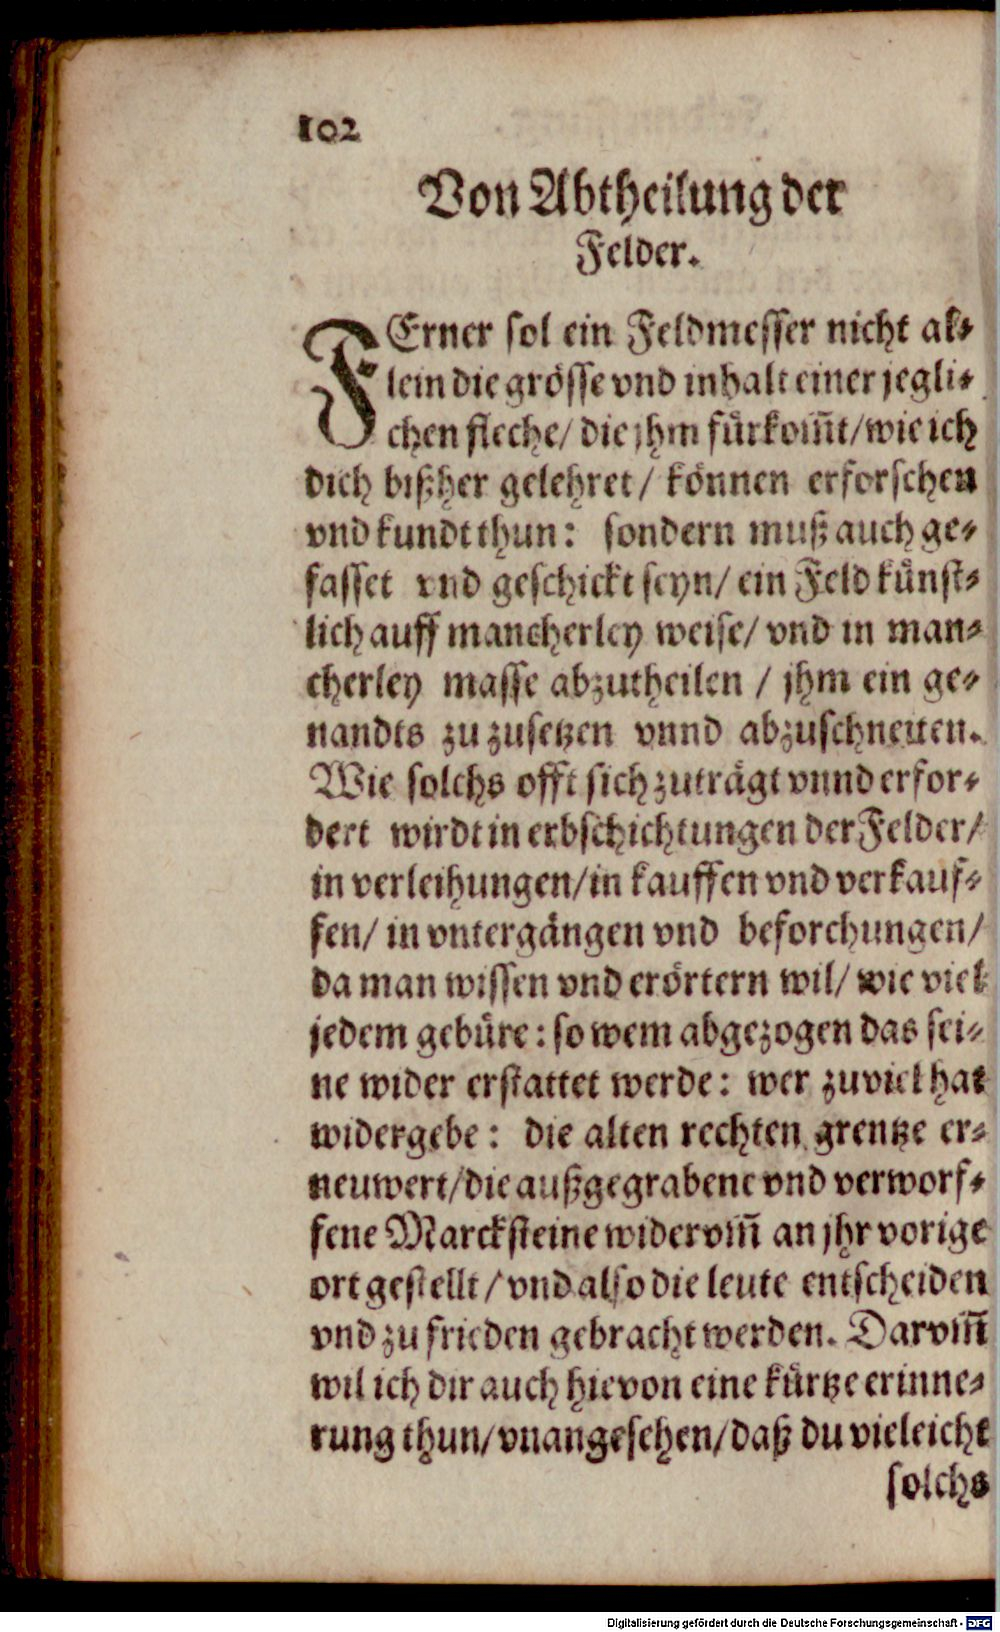 102
Von Abtheilung der
Felder.
FErner sol ein Feldmesser nicht al⸗
lein die grösse vnd inhalt einer jegli⸗
chen fleche/ die jhm fürkom̃t/ wie ich
dich bißher gelehret/ können erforschen
vnd kundt thun: sondern muß auch ge⸗
fasset vnd geschickt seyn/ ein Feld künst⸗
lich auff mancherley weise/ vnd in man⸗
cherley masse abzutheilen / jhm ein ge⸗
nandts zu zusetzen vnnd abzuschneiten.
Wie solchs offt sich zuträgt vnnd erfor⸗
dert wirdt in erbschichtungen der Felder/
in verleihungen/ in kauffen vnd verkauf⸗
fen/ in vntergängen vnd beforchungen/
da man wissen vnd erörtern wil/ wie viel
jedem gebüre: so wem abgezogen das sei⸗
ne wider erstattet werde: wer zuviel hat
widergebe: die alten rechten grentze er⸗
neuwert/ die außgegrabene vnd verworf⸗
fene Marcksteine wider vm̃ an jhr vorige
ort gestellt/ vnd also die leute entscheiden
vnd zu frieden gebracht werden. Darvm̃
wil ich dir auch hievon eine kürtze erinne⸗
rung thun/ vnangesehen/ daß du vieleicht
solchs
Digitalisierung gefördert durch die Deutsche Forschungsgemeinschaft - DFG